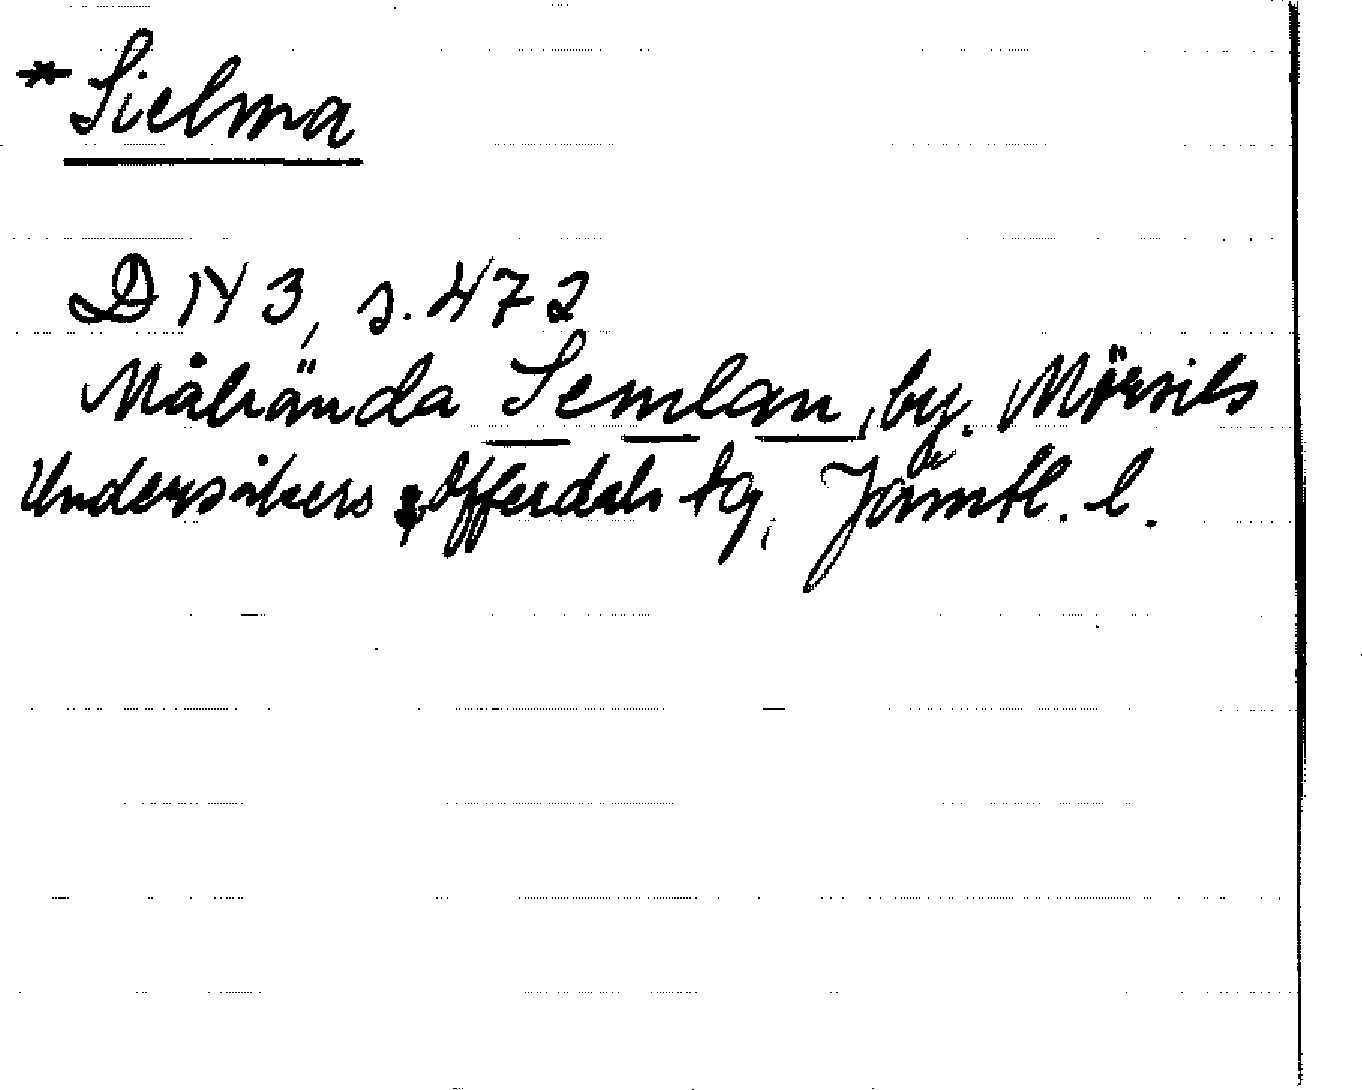 *Sielma
D 143, s. 472
Målrända Semlan, by. Mörsils
Undersåkers & Offerdals tg, Jämtl. l.